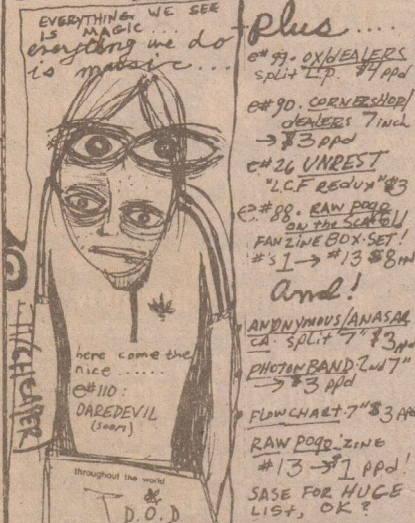 EVERYTHING WE SEE
IS MAGIC...
everything we do
is music...
here come the
nice ......
e#110:
DAREDEVIL
(soon)
throughout the world
D.O.D
plus....
e#99. OX/DEALERS
split L.P. $4 ppd
e#90. CORNERSHOP/
DEALERS 7 inch
→ $3 ppd
e#26 UNREST
"LCF REDUX" $3
e#88. RAW POGO
on the SCAFFOLD
FANZINE BOX-SET!
#'s 1 → #13 $8
And!
ANONYMOUS/ANASAR
CA. split 7" $3 ppd
PHOTON BAND. 2nd 7"
→ $3 ppd
FLOWCHART. 7" $3 PPd
RAW POGO. ZINE
#13 → $1 ppd!
SASE FOR HUGE
LIST, OK?